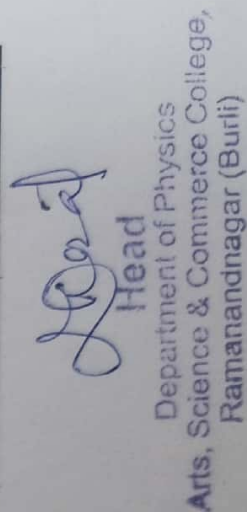 Head
Department of Physics
Arts, Science & Commerce College,
Ramanandnagar (Burli)